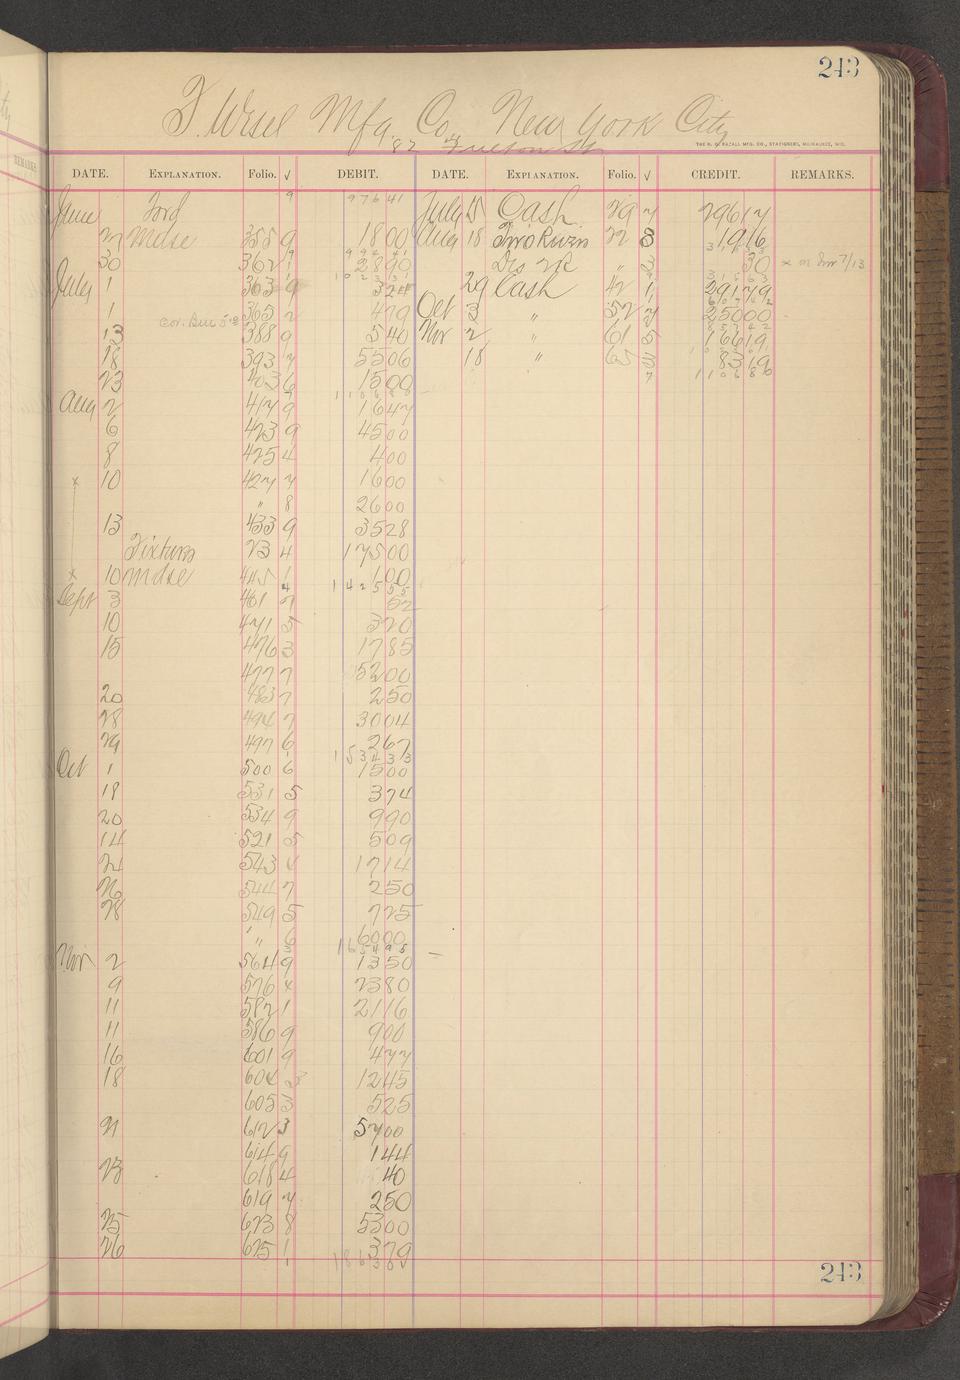 243
F. Wesel Mfg. Co. New York City
82 Fulton St
THE H. G. RAZALL MFG. CO., STATIONERS, MILWAUKEE, WIS.
DATE. EXPLANATION. Folio. √ DEBIT. DATE. EXPLANATION. Folio. √ CREDIT. REMARKS.
June Ford 9 97641 July 15 Cash 29 7 29617
27 Mdse 355 9 1800 Aug 18 22 8 1916
30 362 9 2890 Dis " 3 30 x on Inv 7/13
July 1 363 9 324 29 Cash 42 1 29179
1 365 2 479 Oct 3 " 52 7 25000
13 Cor. Bill 388 9 540 Nov 2 " 61 5 16619
18 393 7 5506 18 " 65 3 8319
23 403 6 1500 7 110680
Aug 2 417 9 1647
6 423 9 4500
8 425 4 400
x 10 427 7 1600
" 8 2600
13 433 9 3528
Fixtures 23 4 17500
x 10 Mdse 445 1 100
4 142555
Sept 3 461 7 52
10 471 5 320
15 476 3 1785
477 7 5200
20 483 7 250
28 494 7 3004
29 497 6 267
153433
Oct 1 500 6 1500
18 531 5 374
20 534 9 990
14 521 5 509
24 543 4 1714
26 544 7 250
28 549 5 725
" 6 6000
165495
Nov 2 564 9 1350 –
9 576 4 2380
11 582 1 2116
11 586 9 900
16 601 9 477
18 604 3 1245
605 3 525
21 612 3 5700
614 9 144
23 618 4 40
619 7 250
25 623 8 5300
26 625 1 379
243